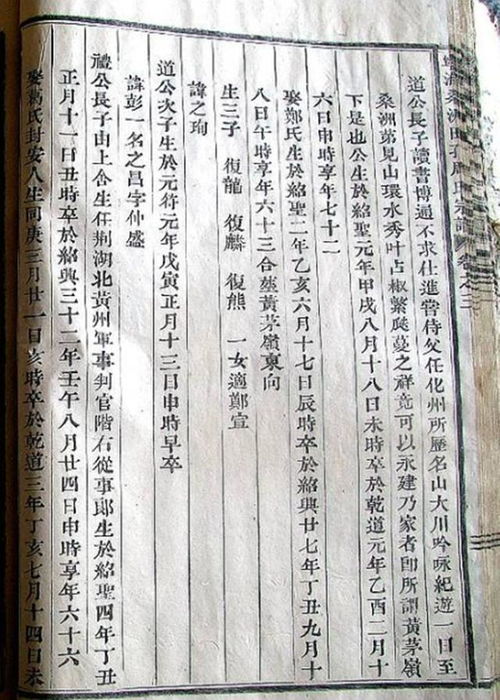 寧海桑洲田孔周氏宗譜 卷之三
道公長子讀書博通不求仕進嘗侍父任化州所歷名山大川吟咏紀遊一日至
桑洲苐見山環水秀叶占椒繁瓞蔓之祥竟可以永建乃家者即所謂黃茅嶺
下是也公生於紹聖元年甲戌八月十八日未時卒於乾道元年乙酉二月十
六日申時享年七十二
娶鄭氏生於紹聖二年乙亥六月十七日辰時卒於紹興廿七年丁丑九月十
八日午時享年六十三合塟黃茅嶺東向
生三子 復龍 復麟 復熊 一女適鄭宣
諱之珣
道公次子生於元符元年戊寅正月十三日申時早卒
諱彭一名之昌字仲盛
禮公長子由上舍生任荆湖北黃州軍事判官階右從事郎生於紹聖四年丁丑
正月十一日丑時卒於紹興三十二年壬午八月廿四日申時享年六十六
娶葛氏封安人生同庚三月廿一日亥時卒於乾道三年丁亥七月十四日未